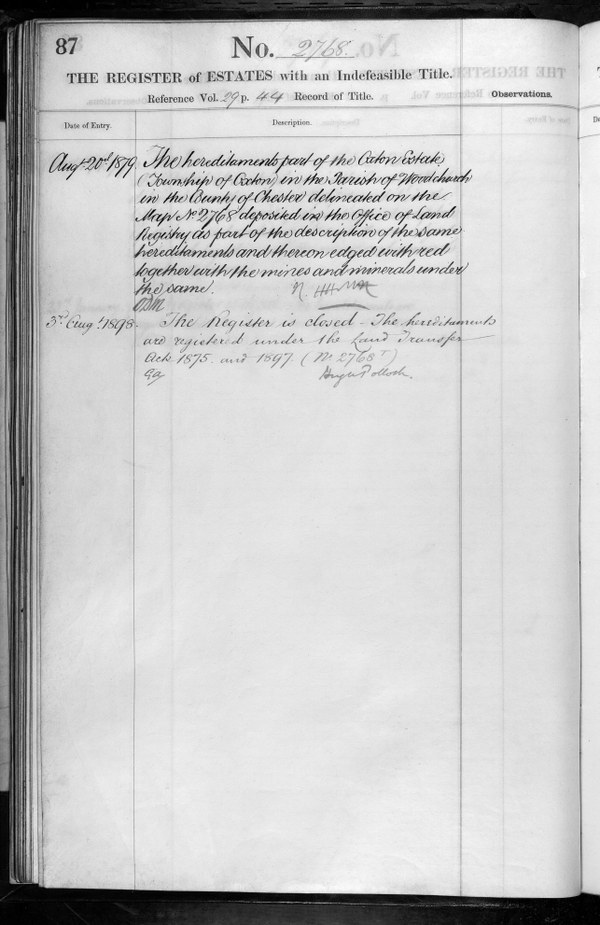 87
No. 2768.
THE REGISTER of ESTATES with an Indefeasible Title.
Reference Vol. 29 p. 44 Record of Title.
Observations.
Date of Entry.
Description.
Augt. 20d 1879.
The hereditaments part of the Oxton Estate
(Township of Oxton) in the Parish of Woodchurch
in the County of Chester delineated on the
Map No 2768 deposited in the Office of Land
Registry as part of the description of the same
hereditaments and thereon edged with red
together with the mines and minerals under
the same.
3rd Augt 1898.
The Register is closed - The hereditaments
are registered under the Land Transfer
Acts 1875 and 1897. (No 2768T)
Hugh Pollock.